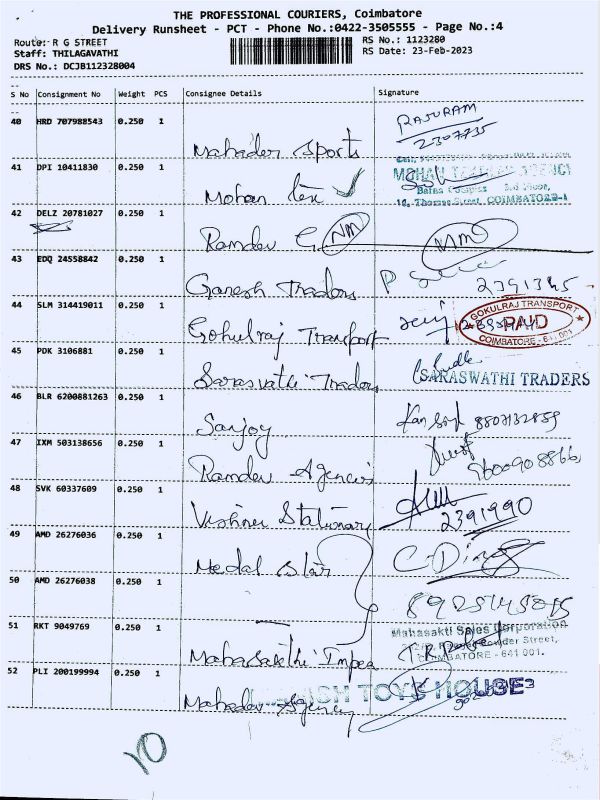 THE PROFESSIONAL COURIERS, Coimbatore
Delivery Runsheet - PCT - Phone No.:0422-3505555 - Page No.:4
Route: R G STREET
RS No.: 1123280
Staff: THILAGAVATHI
RS Date: 23-Feb-2023
DRS No.: DCJB112328004
S No Consignment No Weight PCS Consignee Details Signature
40 HRD 707988543 0.250 1
RAJURAM
2307735
Mahadev Sports
41 DPI 10411830 0.250 1
MOHAN AGENCY
Mohan Tex
16, Thomas Street, COIMBATORE-1
42 DELZ 20781027 0.250 1
Ramdev G. NM
NM
43 EDQ 24558842 0.250 1
Ganesh Traders
2391345
44 SLM 314419011 0.250 1
GOKULRAJ TRANSPORT
PAID
COIMBATORE - 641 001
Gokulraj Transport
45 PDK 3106881 0.250 1
Sarasvathi Traders
SARASWATHI TRADERS
46 BLR 6200881263 0.250 1
Sanjoy
47 IXM 503138656 0.250 1
Ramdev Agencies
48 SVK 60337609 0.250 1
Vishnu Stationary
2391990
49 AMD 26276036 0.250 1
Medal Star
50 AMD 26276038 0.250 1
51 RKT 9049769 0.250 1
Mahasakti Sales Corporation
Street,
COIMBATORE - 641 001.
Mahasakthi Impex
52 PLI 200199994 0.250 1
TOYS HOUSE
Mahadev Agency